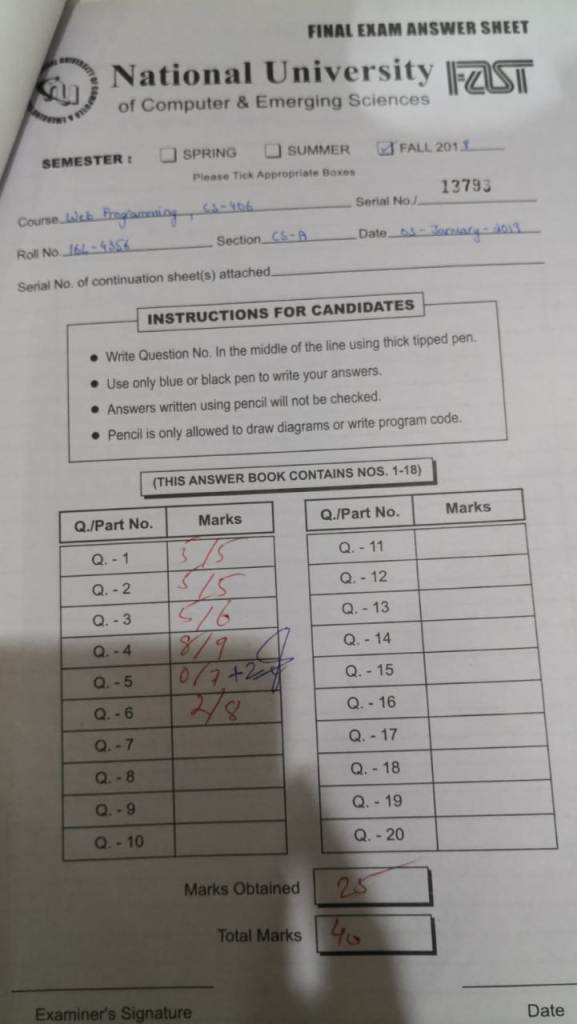 FINAL EXAM ANSWER SHEET
National University FAST
of Computer & Emerging Sciences
SEMESTER : SPRING SUMMER FALL 2018
Please Tick Appropriate Boxes
13793
Course Web Programming, CS-406 Serial No./
Roll No. 16L-4356 Section CS-A Date 03-January-2019
Serial No. of continuation sheet(s) attached
INSTRUCTIONS FOR CANDIDATES
• Write Question No. In the middle of the line using thick tipped pen.
• Use only blue or black pen to write your answers.
• Answers written using pencil will not be checked.
• Pencil is only allowed to draw diagrams or write program code.
(THIS ANSWER BOOK CONTAINS NOS. 1-18)
Q./Part No. Marks
Q. - 1 5/5
Q. - 2 5/5
Q. - 3 5/6
Q. - 4 8/9
Q. - 5 0/7 +2
Q. - 6 2/8
Q. - 7
Q. - 8
Q. - 9
Q. - 10
Q./Part No. Marks
Q. - 11
Q. - 12
Q. - 13
Q. - 14
Q. - 15
Q. - 16
Q. - 17
Q. - 18
Q. - 19
Q. - 20
Marks Obtained 25
Total Marks 40
Examiner's Signature Date